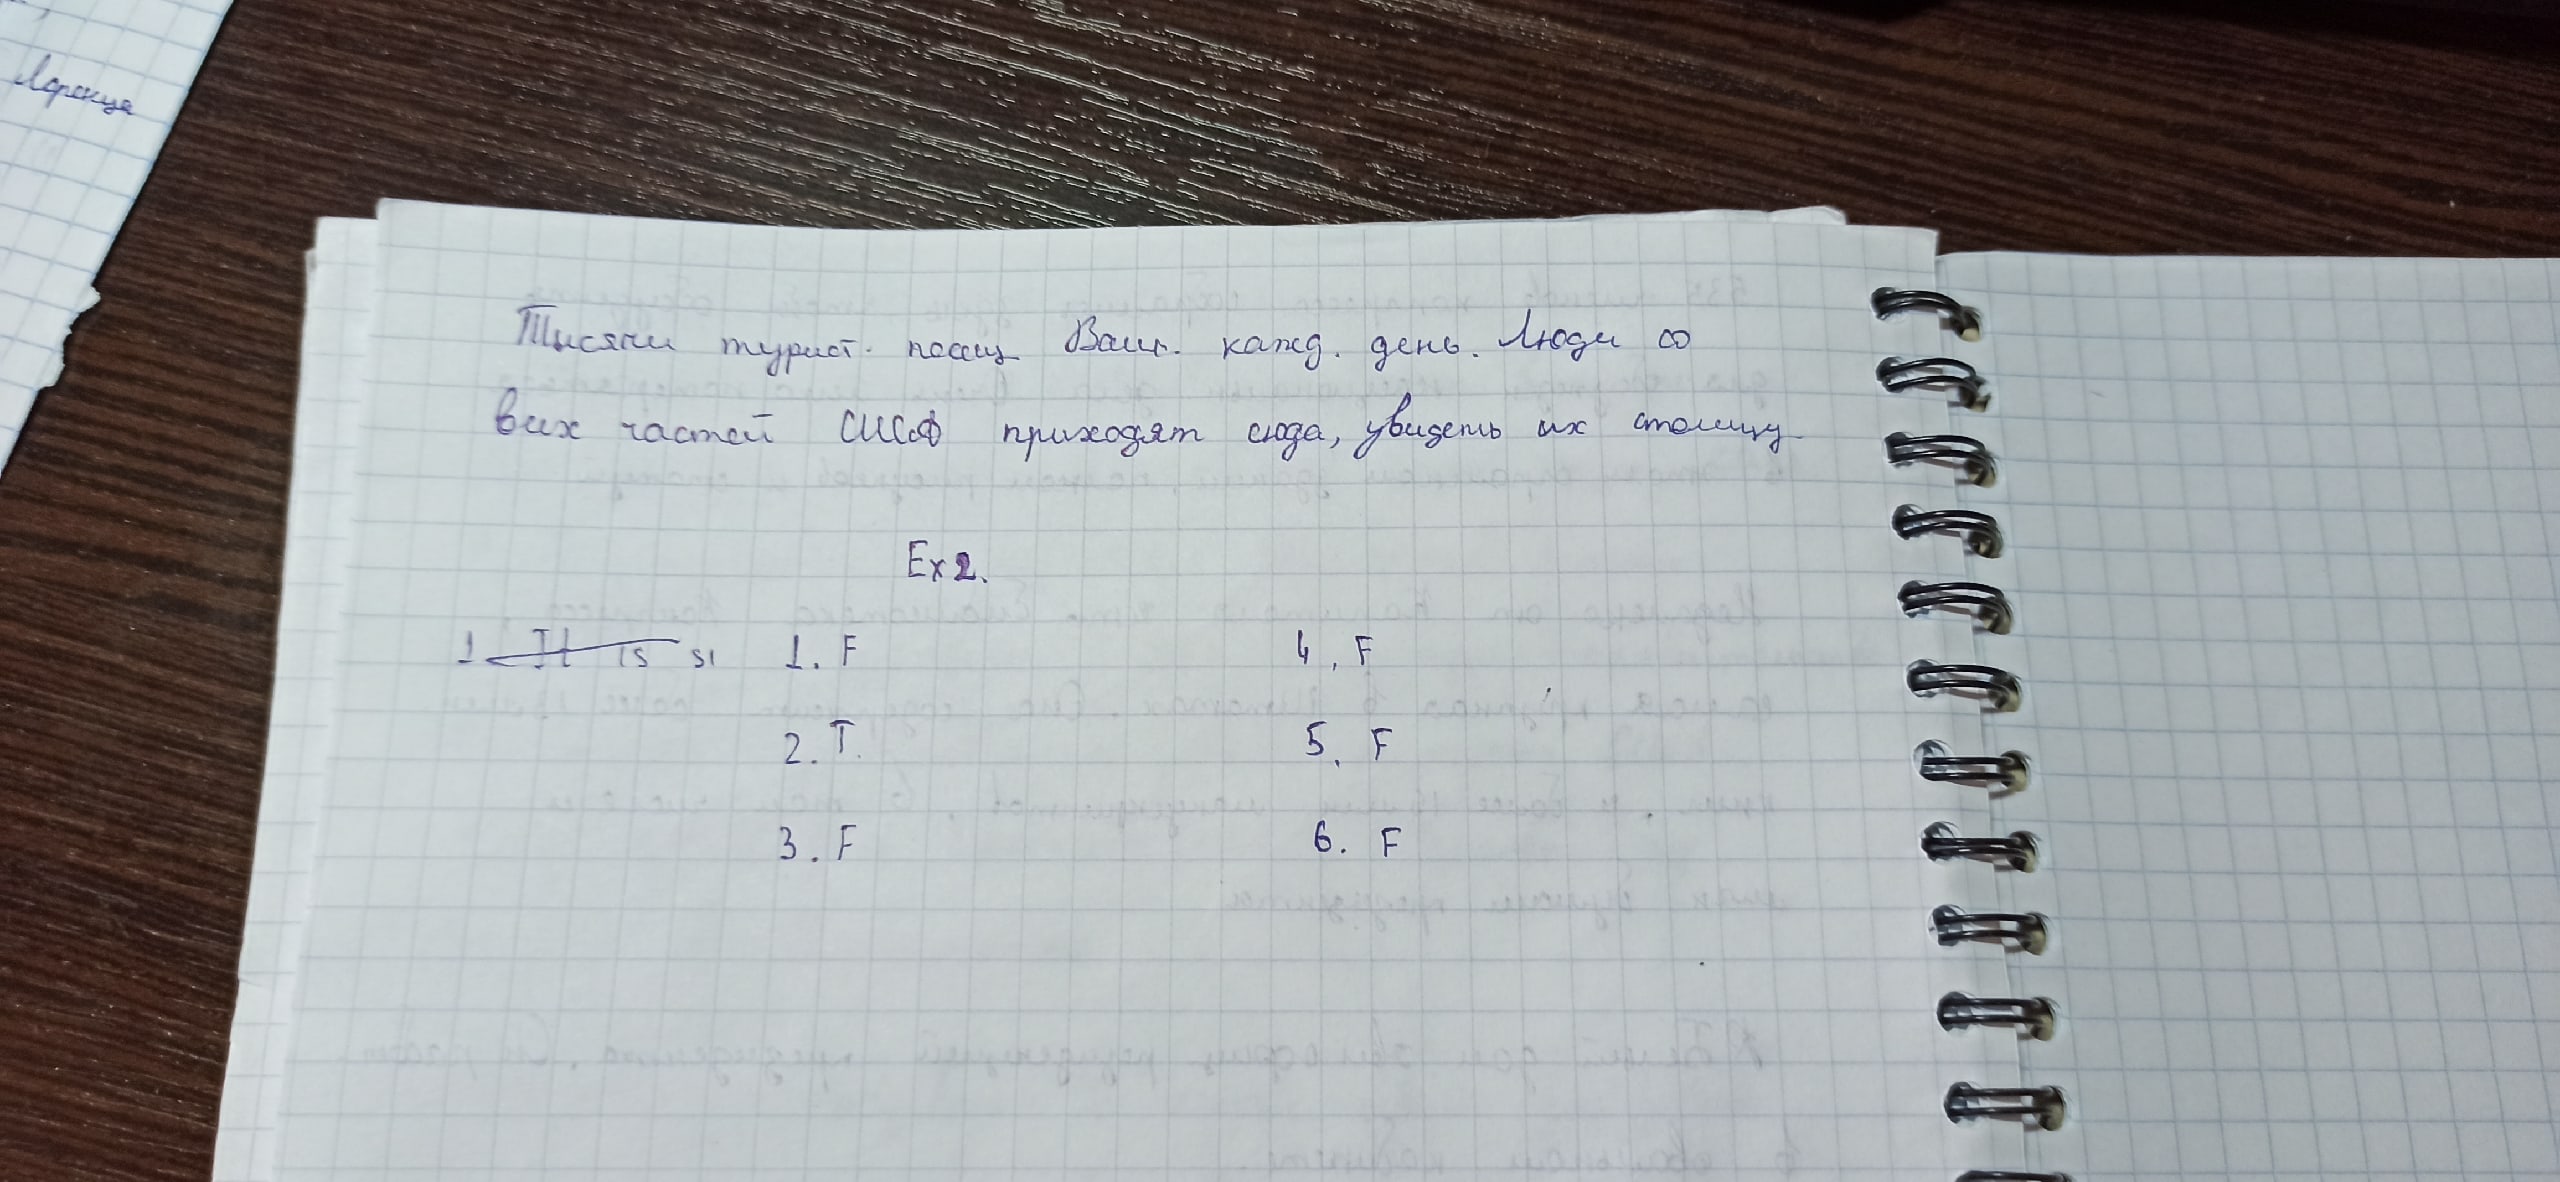 Лоренца
Тысячи турист. посещ Ваш. кажд. день. Люди со
всех частей США приходят сюда, увидеть их столицу
Ex 2.
1 It is si
1. F
2. T.
3. F
4. F
5. F
6. F